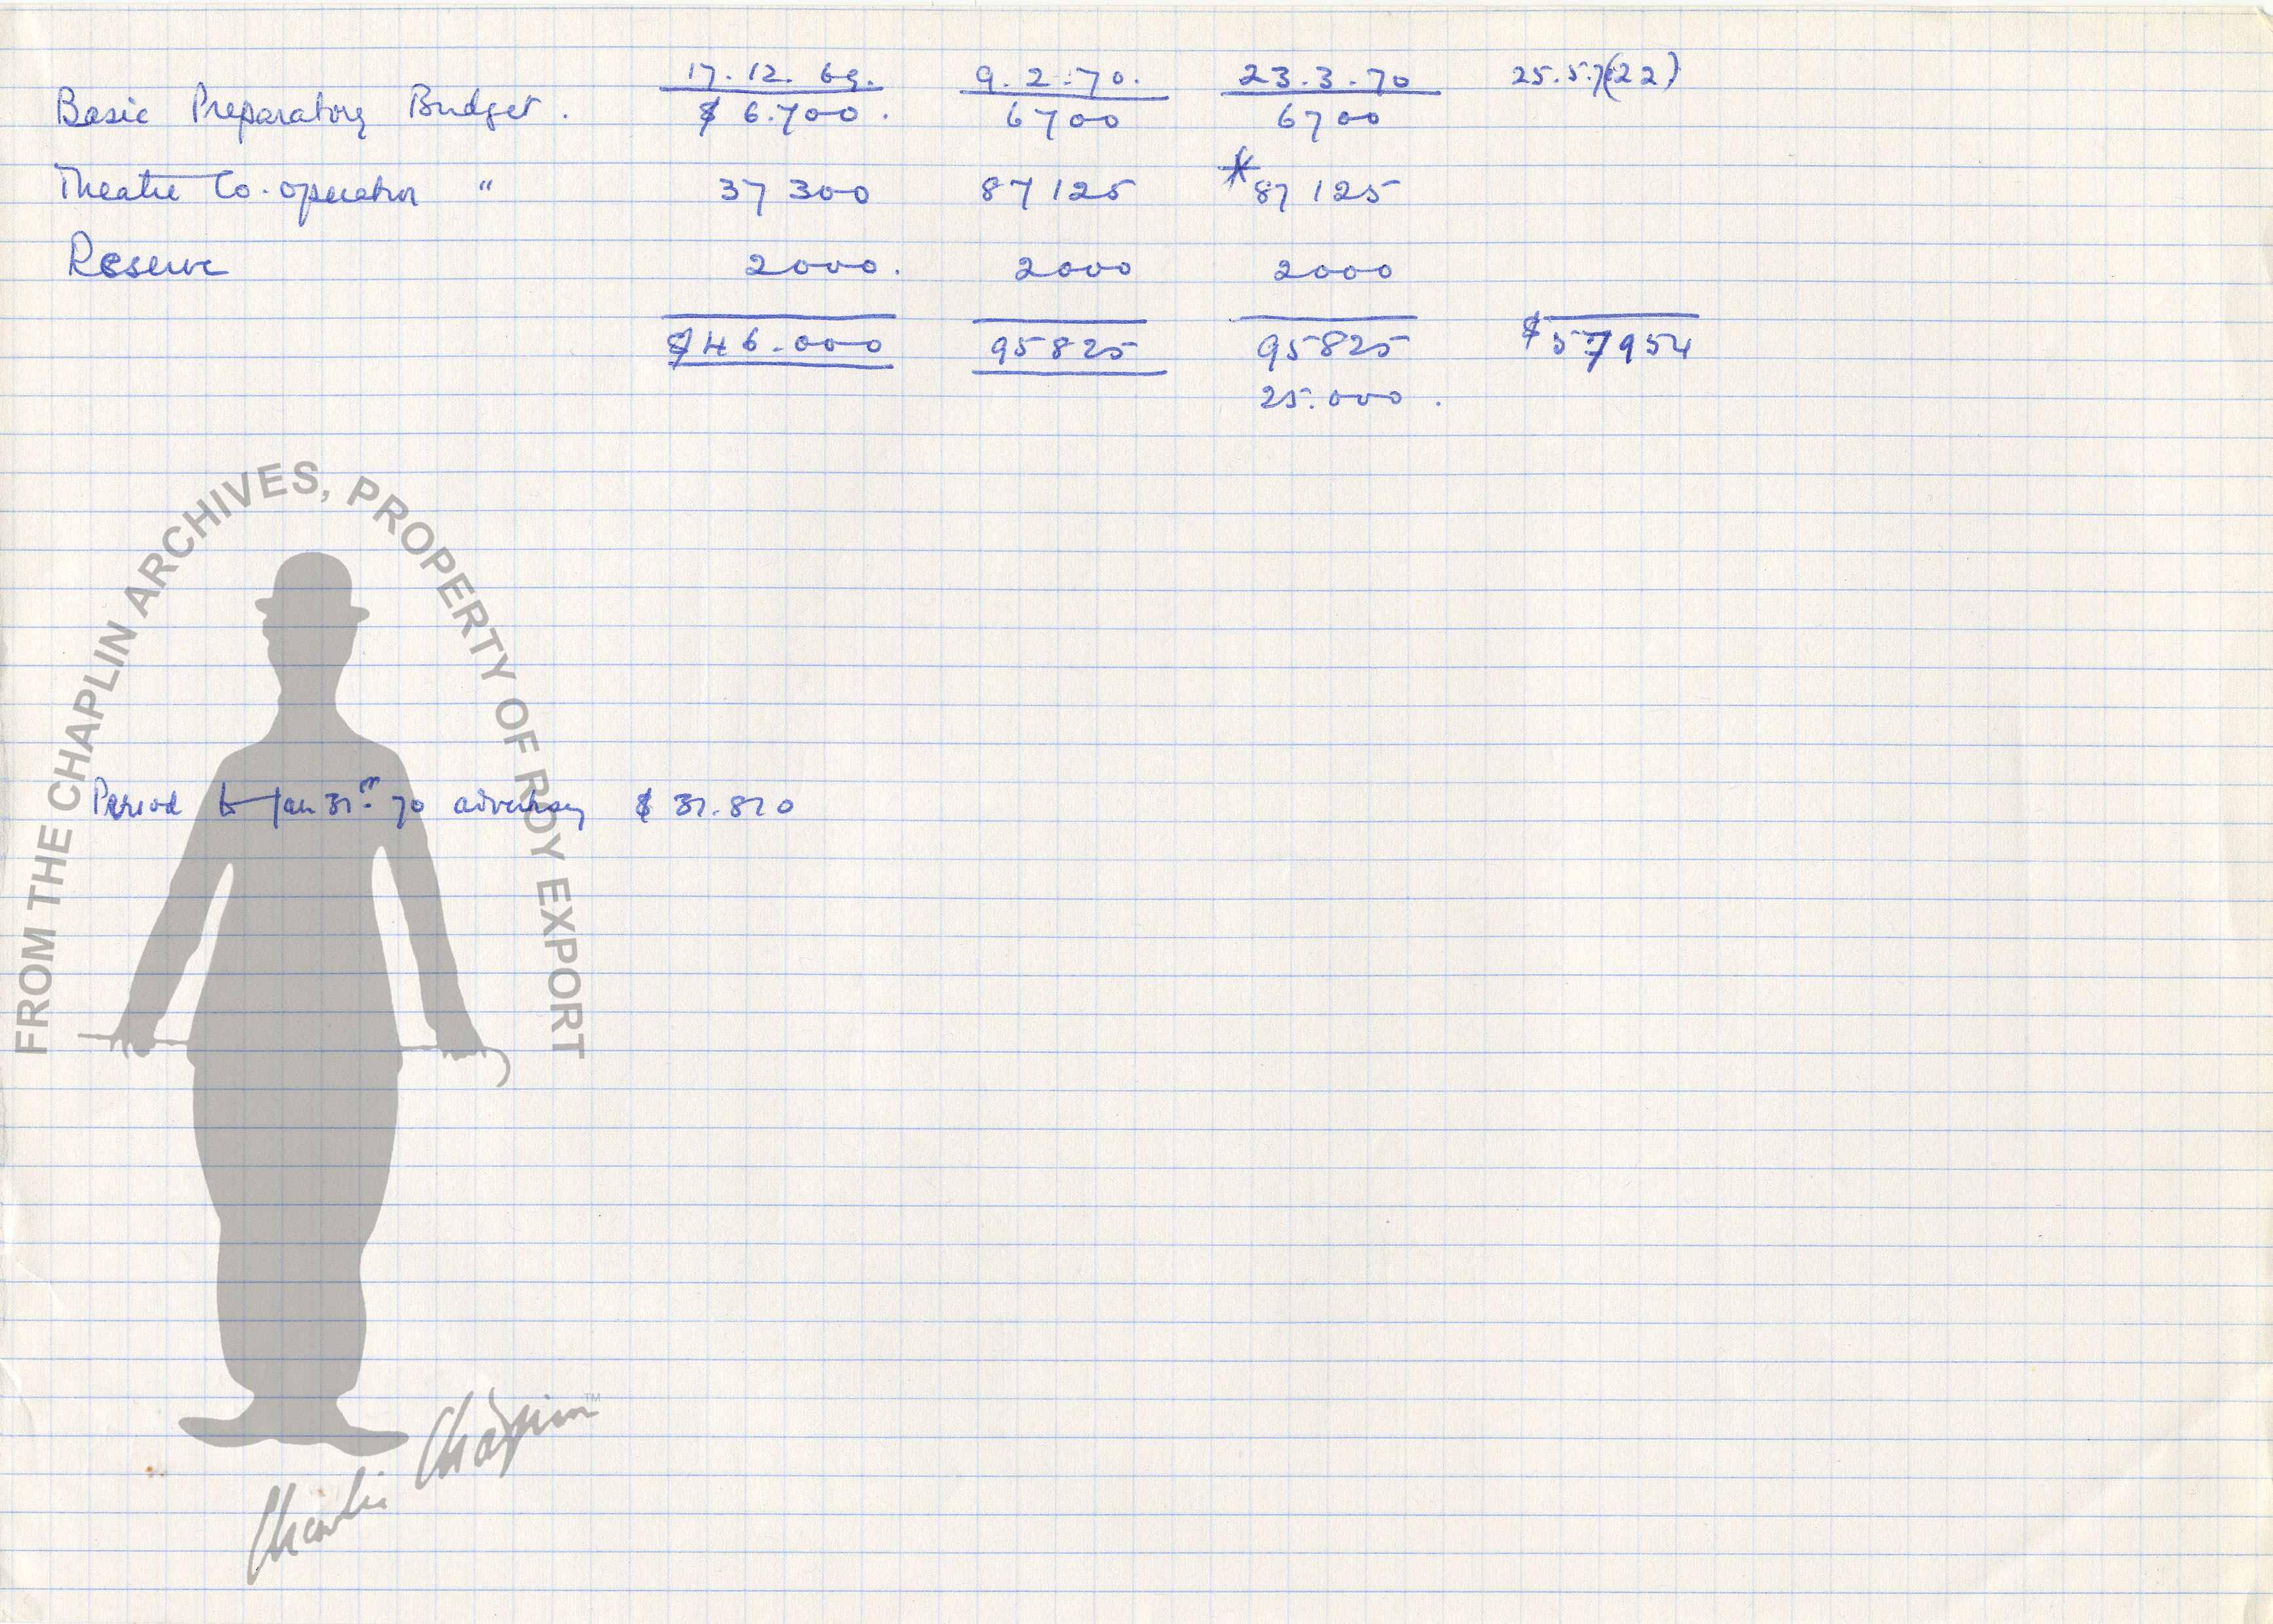 17.12.69. 9.2.70. 23.3.70 25.5.7(22)
Basic Preparatory Budget. $ 6.700. 6700 6700
Theatre Co-operation " 37 300 87 125 * 87 125
Reserve 2000. 2000 2000
$46.000 95825 95825 $57954
25.000.
FROM THE CHAPLIN ARCHIVES, PROPERTY OF ROY EXPORT
Period to Jan 31st 70 advertising $ 31.810
Charlie Chaplin TM